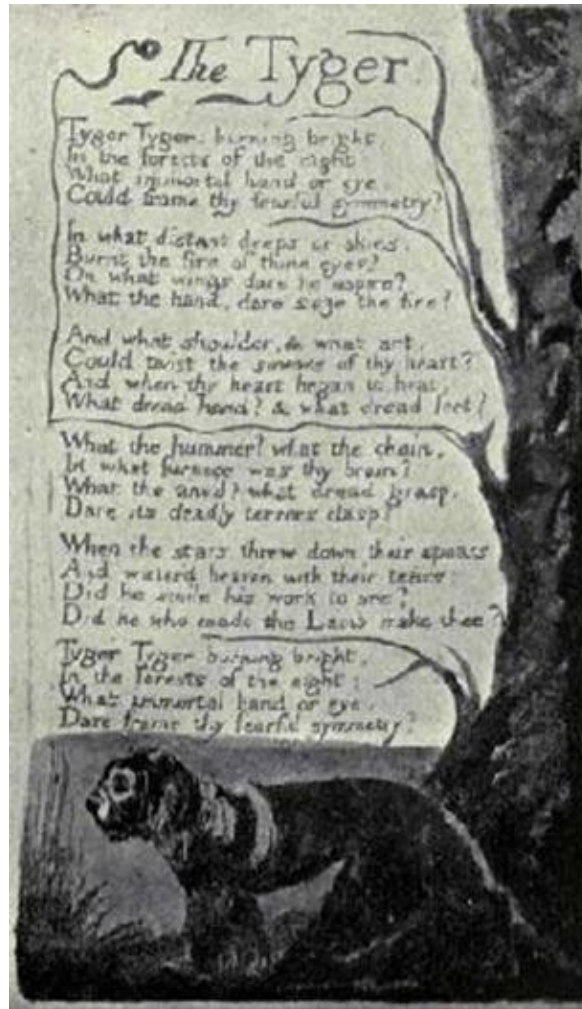 The Tyger
Tyger Tyger, burning bright,
In the forests of the night
What immortal hand or eye,
Could frame thy fearful symmetry?
In what distant deeps or skies,
Burnt the fire of thine eyes?
On what wings dare he aspire?
What the hand, dare sieze the fire?
And what shoulder, & what art,
Could twist the sinews of thy heart?
And when thy heart began to beat,
What dread hand? & what dread feet?
What the hammer? what the chain,
In what furnace was thy brain?
What the anvil? what dread grasp,
Dare its deadly terrors clasp?
When the stars threw down their spears
And water'd heaven with their tears:
Did he smile his work to see?
Did he who made the Lamb make thee?
Tyger Tyger burning bright,
In the forests of the night:
What immortal hand or eye,
Dare frame thy fearful symmetry?